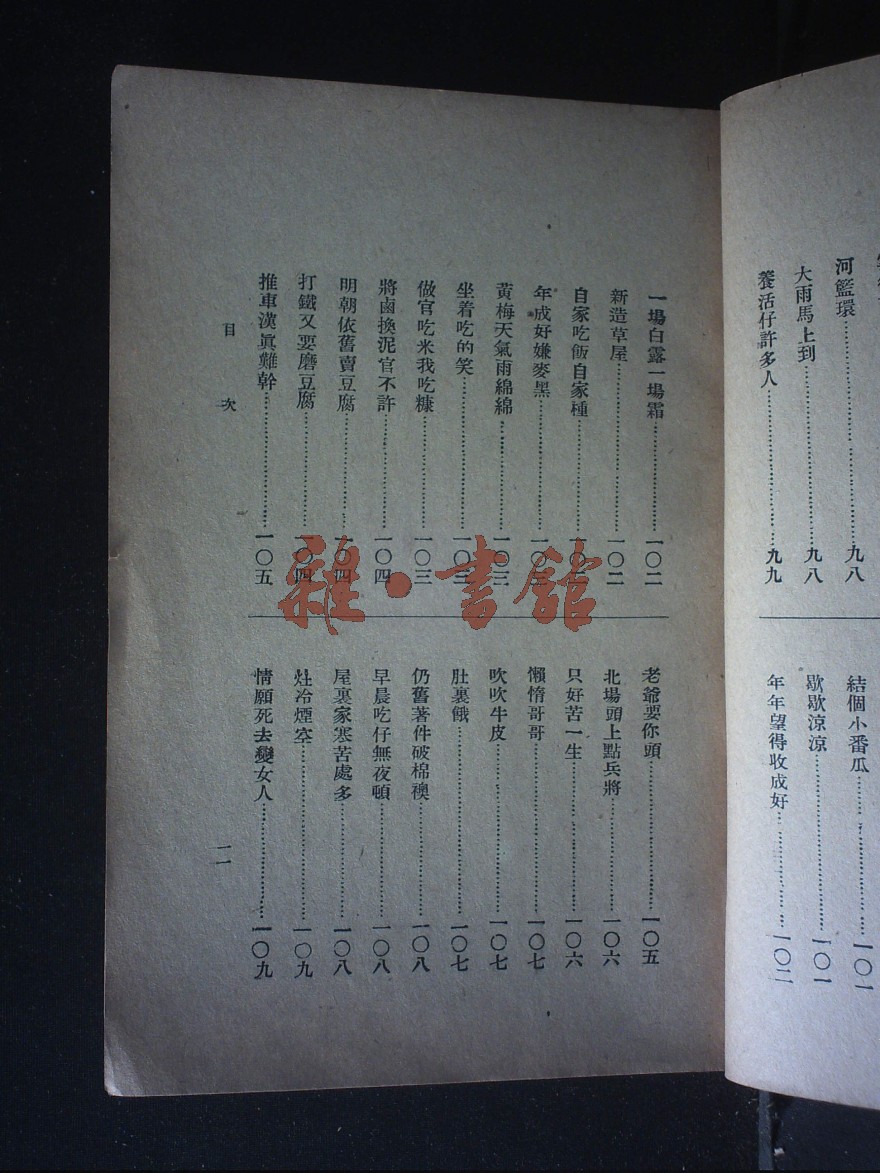 河籃環……九八
大雨馬上到……九八
養活仔許多人……九九
結個小番瓜……一〇一
歇歇涼涼……一〇一
年年望得收成好……一〇二
一場白露一場霜……一〇二
新造草屋……一〇二
自家吃飯自家種……一〇三
年成好嫌麥黑……一〇三
黄梅天氣雨綿綿……一〇三
坐着吃的笑……一〇三
做官吃米我吃糠……一〇三
將鹵換泥官不許……一〇四
明朝依舊賣豆腐……一〇四
打鐵又要磨豆腐……一〇四
推車漢眞難幹……一〇五
老爺要你頭……一〇五
北場頭上點兵將……一〇六
只好苦一生……一〇六
懶惰哥哥……一〇七
吹吹牛皮……一〇七
肚裏餓……一〇七
仍舊著件破棉襖……一〇八
早晨吃仔無夜頓……一〇八
屋裏家寒苦處多……一〇八
灶冷煙空……一〇九
情願死去變女人……一〇九
目次
一一
雜·書館